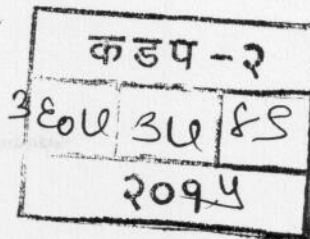 कडप - २
३६०५ ३५
२०१५